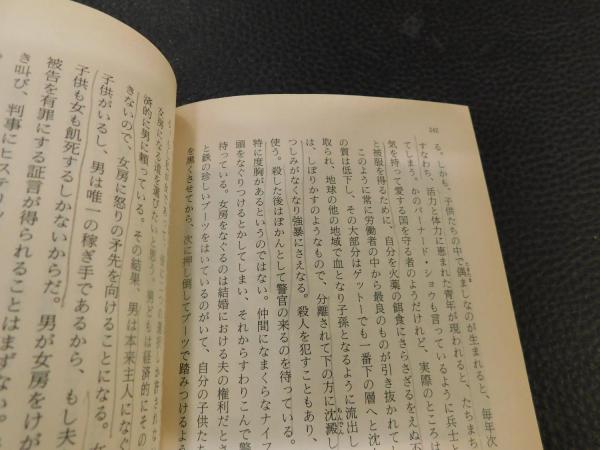 242
る。しかも、子供たちの中で偶ましなのが生まれると、毎年次
すなわち、活力と体力に恵まれた青年が現われると、たちまち
てしまう。かのバーナード・ショウも言っているように兵士と
気を持って愛する国を守る者のようだけれど、実際のところは
と被服を得るために、自分を火薬の餌食にさらさざるをえぬ不
このように常に労働者の中から最良のものが引き抜かれて
の質は低下し、その大部分はゲットーでも一番下の層へと沈
取られ、地球の他の地域で血となり子孫となるように流出し
は、しぼりかすのようなもので、分離されて下の方に沈澱し
つしみがなくなり強暴にさえなる。殺人を犯すこともあり、
使う。殺した後はぽかんとして警官の来るのを待っている。
特に度胸があるというのではない。仲間になまくらなナイフ
頭をなぐりつけるとかしてしまい、それからすわりこんで警
待っている。女房をなぐるのは結婚における夫の権利だとさ
と鉄の珍しいブーツをはいているのがいて、自分の子供たち
を黒くさせてから、次に押し倒してブーツで踏みつけるよう
済的に男に頼っている。その結果、男は本来主人になぐ
きないので、女房に怒りの矛先を向けることになる。女
子供がいるし、男は唯一の稼ぎ手であるから、もし夫
子供も女も飢死するしかないからだ。男が女房をけが
被告を有罪にする証言が得られることはまずない。
き叫び、判事にヒステリッ